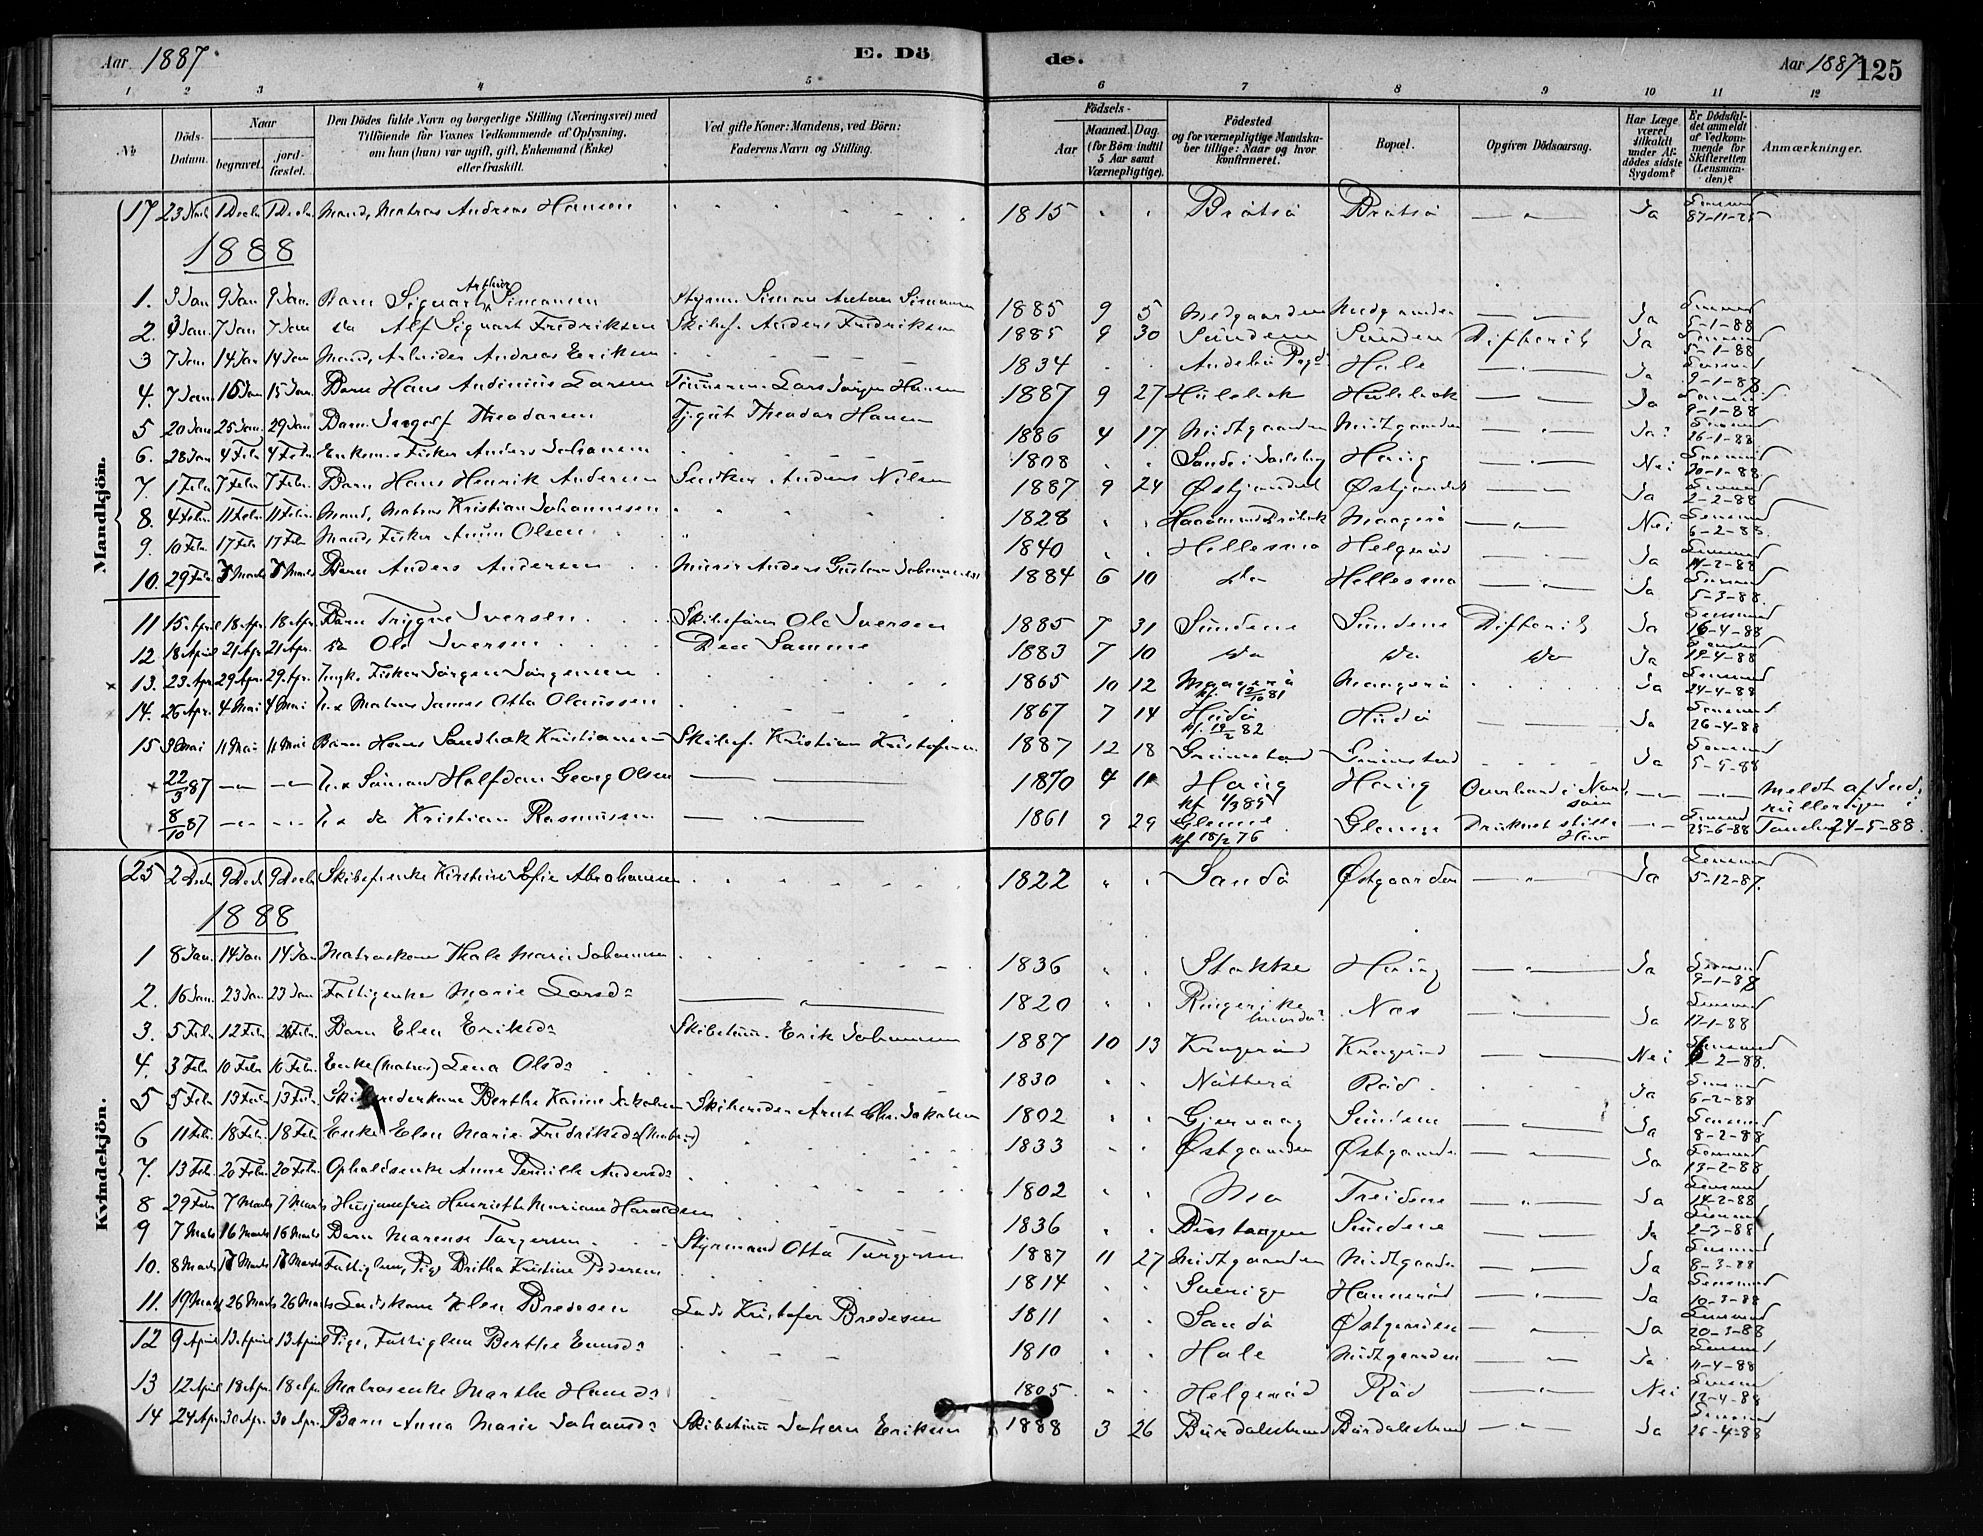 Aar 1887. E. Dö de. Aar 1887 125
1 2 3 4 5 6 7 8 9 10 11 12
№ Döds-Datum. Naar begravet. jordfæstet. Den Dödes fulde Navn og borgerlige Stilling (Næringsvei) med Tilföiende for Voxnes Vedkommende af Oplysning, om han (hun) var ugift, gift, Enkemand (Enke) eller fraskilt. Ved gifte Koner: Mandens, ved Börn: Faderens Navn og Stilling. Födsels- Aar Maaned. Dag. (for Börn indtil 5 Aar samt Værnepligtige). Födested og for værnepligtige Mandskaber tillige: Naar og hvor konfirmeret. Bopæl. Opgiven Dödsaarsag. Har Læge været tilkaldt under Afdödes sidste Sygdom? Er Dödsfaldet anmeldt af Vedkommende for Skifteretten (Lensmanden)? Anmærkninger.
Mandkjön.
17 23 Novb 1 Decbr 1 Decbr Mand, Matros Andreas Hansen 1815 Bråtsö Bråtsö Ja 87-11-25
1888
1. 3 Jan 9 Jan 9 Jan Barn Sigvart Arthur Simonsen Styrm. Simon Simonsen 1885 9 5 Medgaarden Medgaarden Ja 5-1-88
2. 3 Jan 7 Jan 7 Jan do Alf Sigvart Fredriksen Skibsf. Anders Fredriksen 1885 9 30 Sundene Sunden Difterit Ja 5-1-88
3 7 Jan 14 Jan 14 Jan Mand, Arbeider Andreas Eriksen 1834 Andebu Hale Ja 9-1-88
4. 7 Jan 15 Jan 15 Jan Barn Hans Andinius Larsen Tömmerm. Lars Jörgen Hansen 1887 9 27 Hulebak Hulebak Ja 9-1-88
5 20 Jan 25 Jan 29 Jan Barn Ingolf Theodorsen Tjgut Theodor Hansen 1886 4 17 Midtgaarden Midtgaarden Ja 26-1-88
6. 28 Jan 4 Febr 4 Febr Enkem. Fisker Anders Johansen 1808 Sande i Jarlsberg Høiig Nei 30-1-88
7. 1 Febr 7 Febr 7 Febr Barn Hans Henrik Andersen Snedker Anders Nilsen 1887 9 24 Ja 2-2-88
8. 4 Febr 11 Febr 11 Febr Mand, Matros Kristian Johannesen 1828 Maagerö Nei 6-2-88.
9. 10 Febr 17 Febr 17 Febr Mand, Fisker Olsen 1840 Hellesmo Helgeröd Ja 11-2-88
10. 29 Febr 5 Marts 5 Marts Barn Anders Andersen Anders Gustav Johannesen 1884 6 10 do Hellesmo Ja 5-3-88.
11 15 April 18 Apr. 18 Apr. Barn Trygve Iversen Skibsförer Ole Iversen 1885 7 31 Sundene Sundene Difterit Ja 16-4-88
12 18 April 21 Apr 21 Apr. do Olof Iversen Den Samme 1883 7 10 do do do Ja 19-4-88
× 13. 23 Apr 29 Apr. 29 Apr. Ungk. Fisker Jörgen Jörgensen 1865 10 12 Maagerö kf. 2/10 81 Maagerö Ja 24-4-88
14. 26 Apr. 4 Mai 4 Mai Matros James Otto Olaussen 1867 7 14 Hudö kf. 19/2 82 Hudö Ja 26-4-88
15 3 Mai 11 Mai 11 Mai Barn Hans Sandbak Kristiansen Skibsf. Kristian Kristofersen 1887 12 18 Grimestad Grimestad Ja 5-5-88
× 22/3 87 Sömand Halfdan Georg Olsen 1870 4 11 Høiig kf. 1/3 85 Høiig Overbord i Nordsöen Meldt af
8/10 87 do Kristian Rasmussen 1861 9 29 Glenne kf. 18/2 76 Glenne Druknet stille Hav 25-6-88 24-5-88.
Kvindekjön.
25 2 Decbr 9 Decbr 9 Decbr Skibsf.enke Kirstine Sofie Abrahamsen 1822 Sandö Østgaarden Ja 5-12-87.
1888
1 8 Jan. 14 Jan 14 Jan Matroskone Thale Marie Johannesen 1836 Stokke Høiig Ja 9-1-88
2. 16 Jan. 23 Jan 23 Jan Fattigenke Marie Larsdr 1820 Ringerike Næs Ja 17-1-88
3. 5 Febr 12 Febr 26 Febr. Barn Elen Eriksdr Skibstöm. Erik Johansen 1887 10 13 Krageröd Krageröd Nei 6-2-88.
4. 3 Febr 10 Febr 16 Febr. Enke (Matros) Lena Olsdr 1830 Nötterö Röd Ja 6-2-88
5 5 Febr 13 Febr 13 Febr. Skibsrederkone Berthe Karine Jakobsen Skibsreder Arnt Chr. Jakobsen 1802 Gjervaag Sundene Ja 8-2-88
6 11 Febr. 18 Febr. 18 Febr. Enke Elen Marie Fredriksdr (Matros) 1833 Østgaarden Østgaarden Ja 13-2-88
7. 13 Feb. 20 Febr. 20 Febr. Opholdsenke Anne Pernille Andersdr 1802 Mo Treidene Ja 14-2-88
8 29 Febr 7 Marts 7 Marts Husjomfru Henriette Mariane Haraldsen 1836 Sundene Ja 2-3-88
9 7 Marts 16 Marts 16 Marts Barn Marense Torgersen Styrmand Otto Torgersen 1887 11 27 Midtgaarden Midtgaarden Ja 8-3-88
10. 8 Marts 17 Marts 17 Marts Fattiglem, Pige Britha Kristine Pedersen 1814 Sverige Hanneröd Ja 10-3-88
11. 19 Marts 26 Marts 26 Marts Lodskone Elen Bredesen Lods Kristofer Bredesen 1811 Sandö Østgaarden Ja 20-3-88
12 9 April 13 April 13 April Pige, Fattiglem Berthe Evensdr 1810 Hale Midtgaarden Ja 11-4-88
13 12 April 18 Apr. 18 Apr. Matrosenke Marthe Hansdr 1805 Helgeröd Röd Nei 13-4-88
14 24 Apr 30 Apr. 30 Apr. Barn Anna Marie Johansdr Skibstöm Johan Eriksen 1888 3 26 Burdalsstrand Burdalsstrand Ja 25-4-88